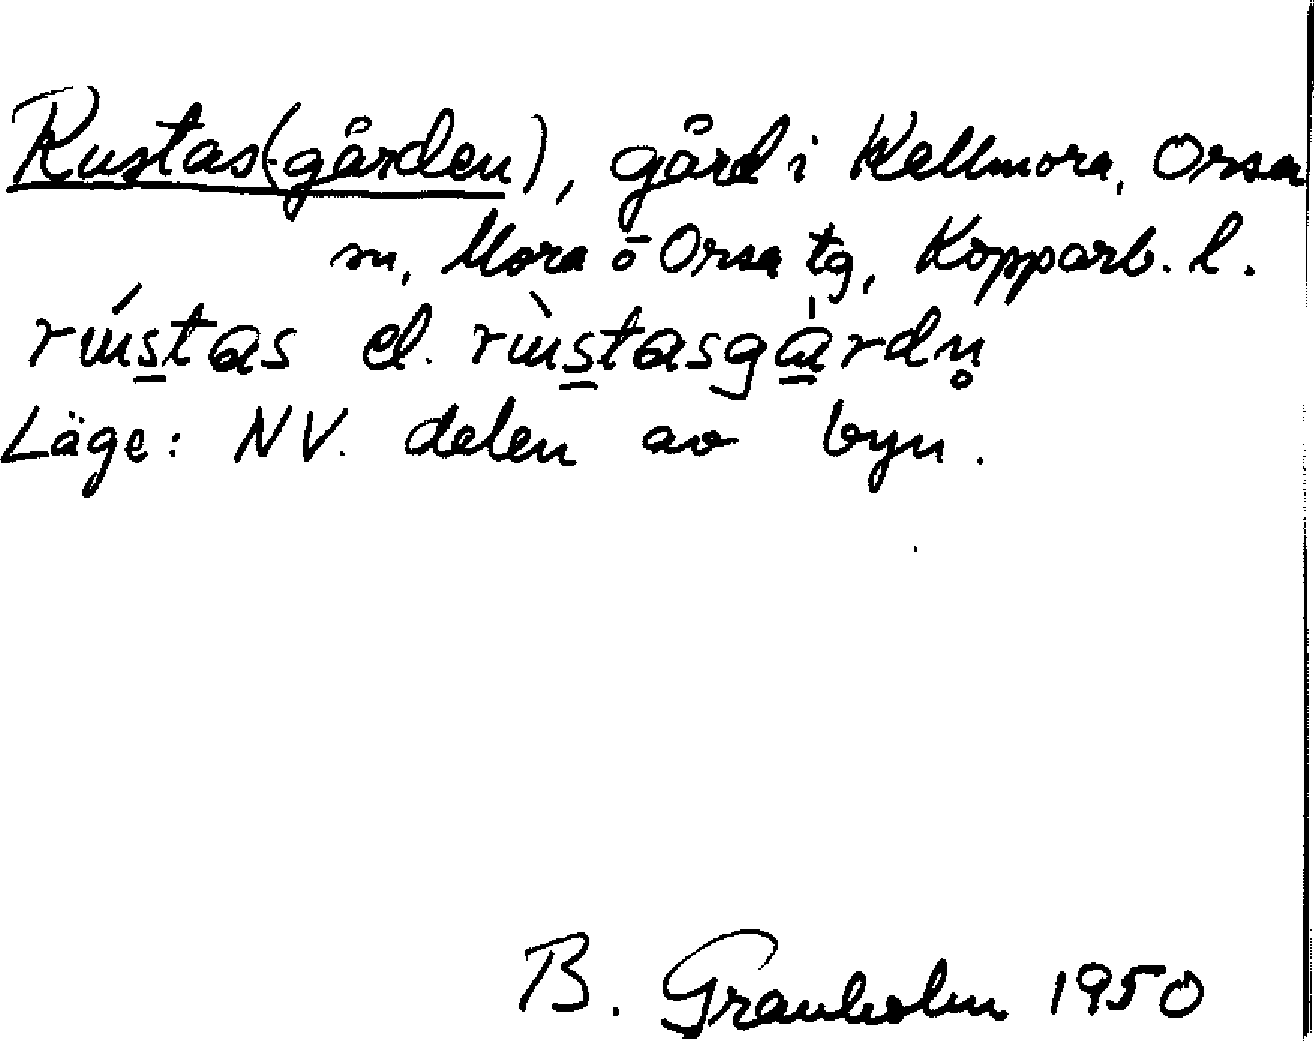 Rustas(-gården), gård i Kallmora, Orsa
sn, Mora o Orsa tg, Kopparb. l.
rústas el. rùstasgárdn̥
Läge: NV. delen av byn.
B. Granholm 1950